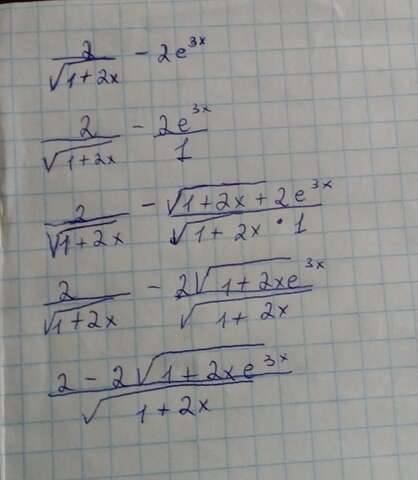 2/√(1+2x) - 2e^3x
2/√(1+2x) - 2e^3x/1
2/√(1+2x) - √(1+2x+2e^3x)/(√(1+2x) · 1)
2/√(1+2x) - 2√(1+2xe^3x)/√(1+2x)
(2-2√(1+2xe^3x))/√(1+2x)